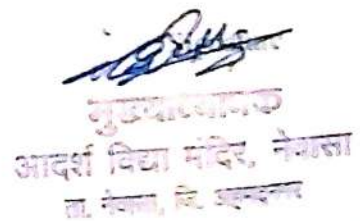 मुख्याध्यापक
आदर्श विद्या मंदिर, नेवासा
ता. नेवासा, जि. अहमदनगर